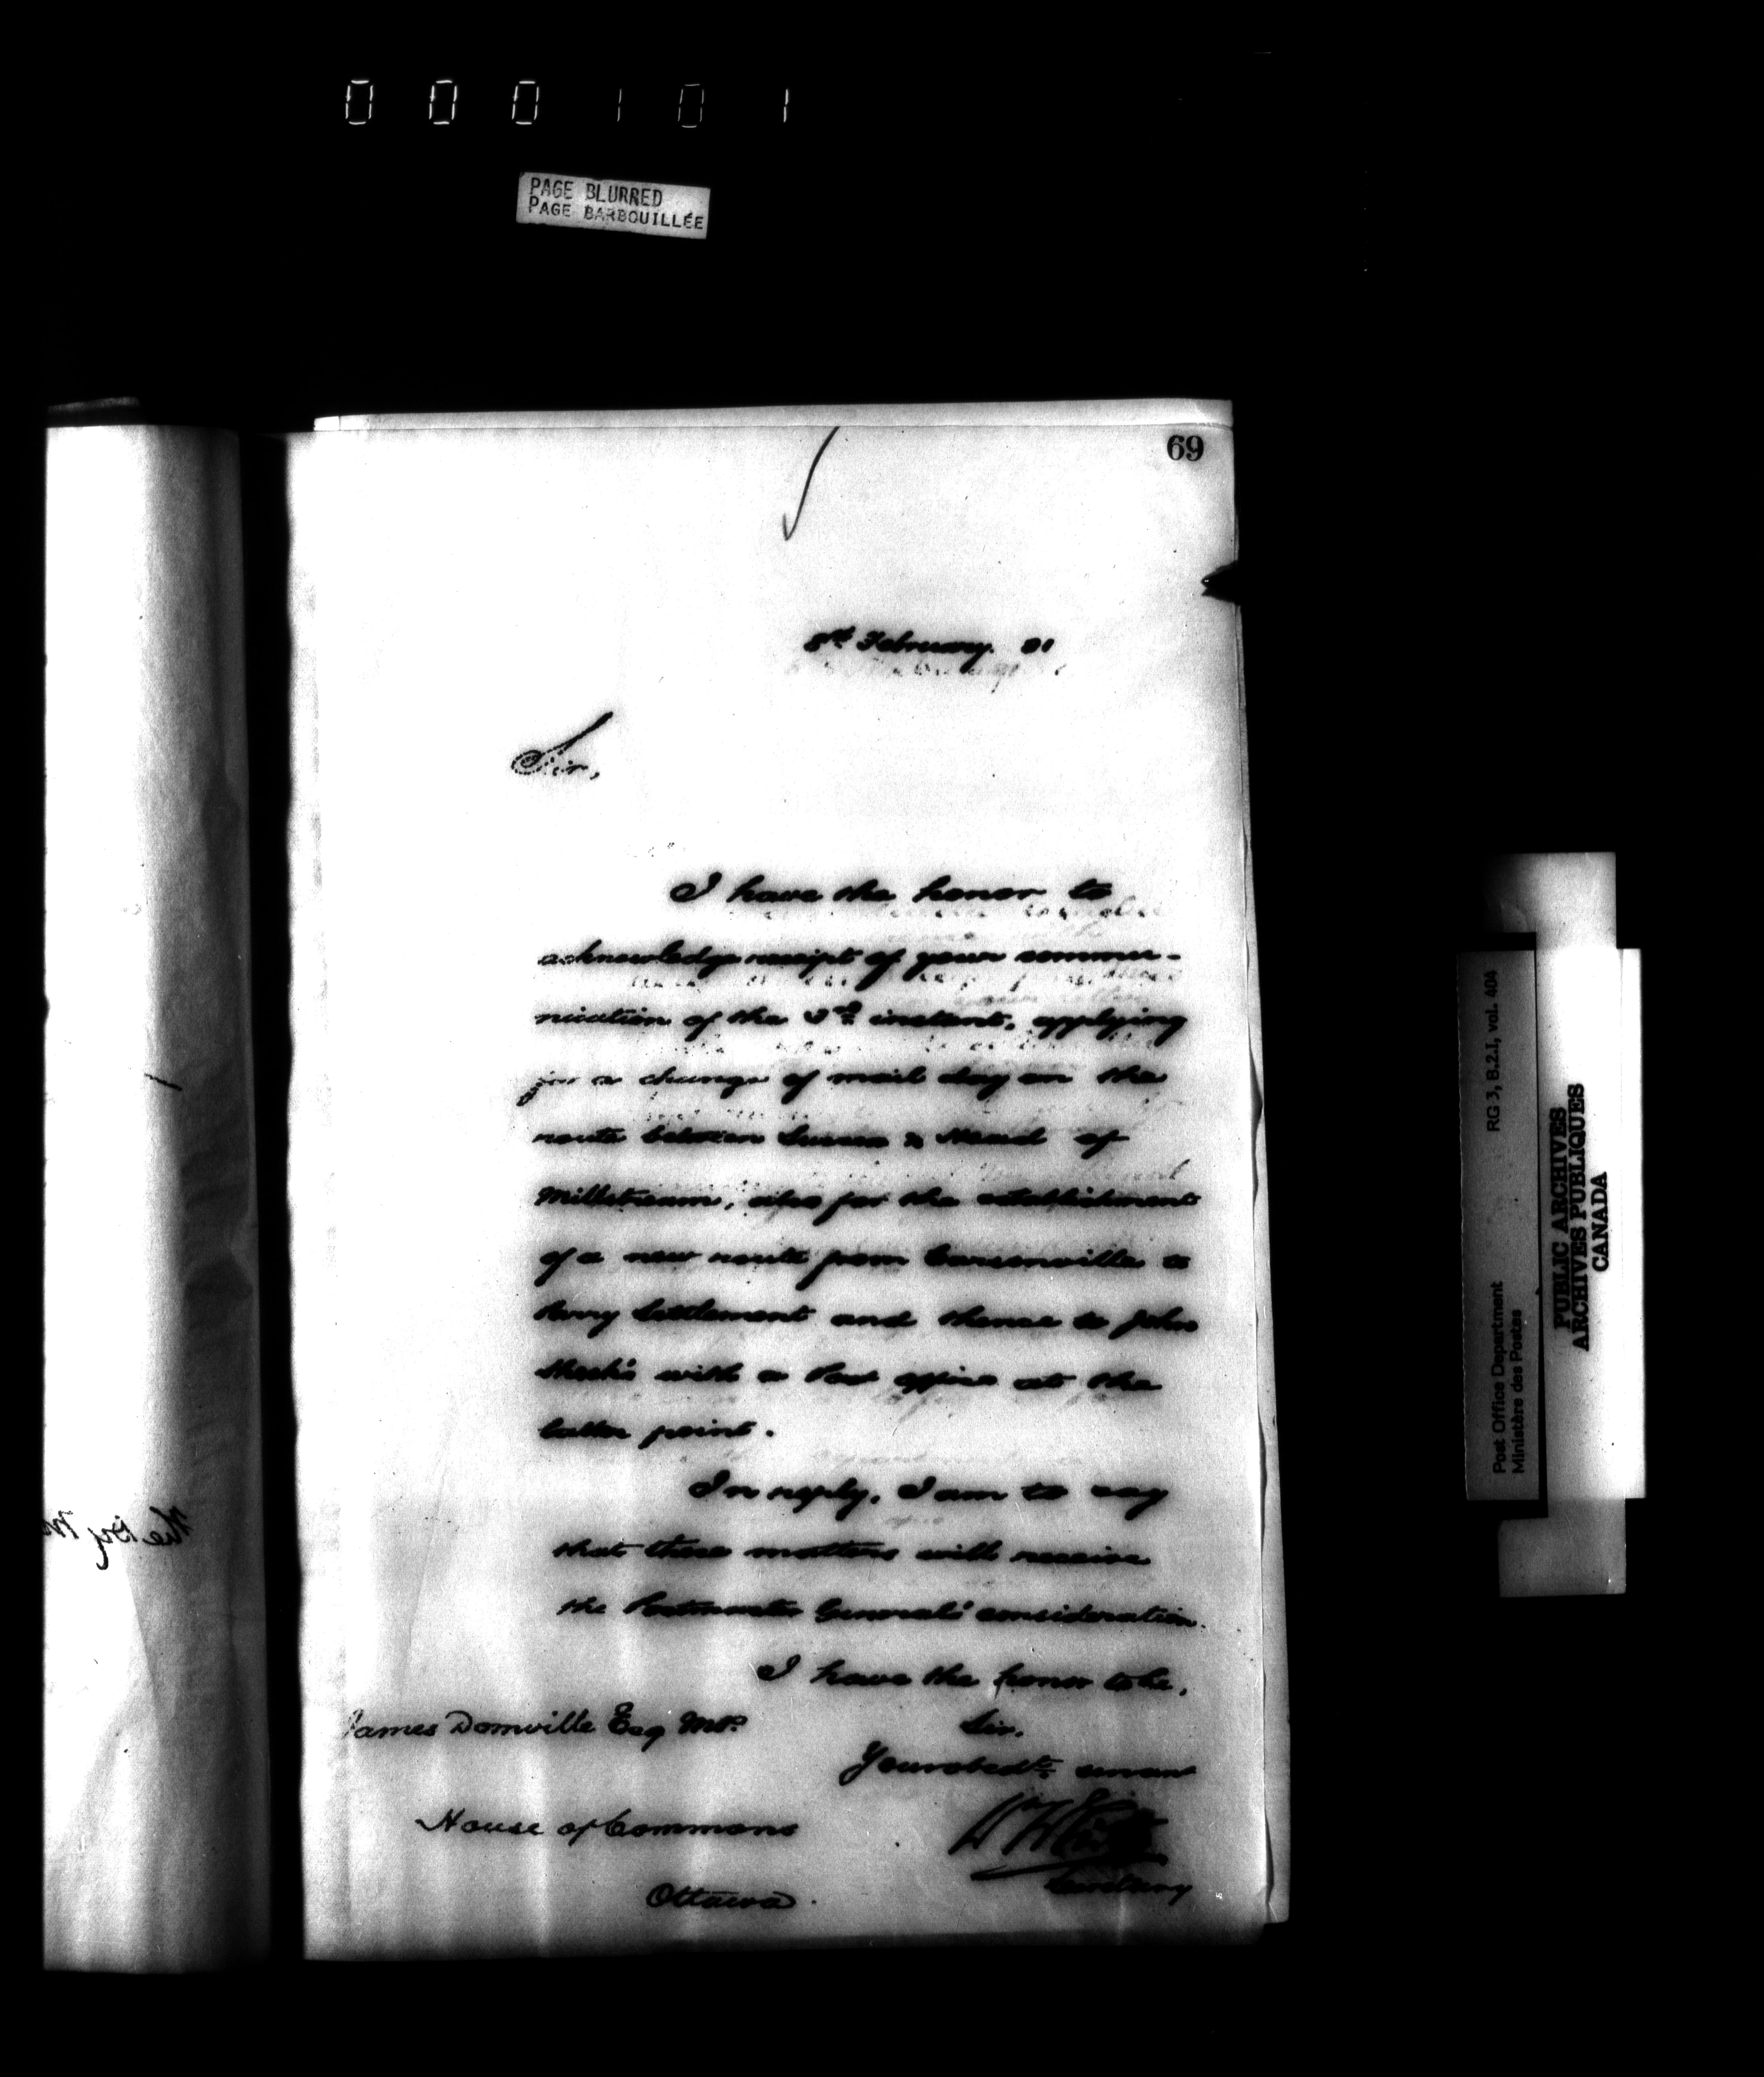 000101
PAGE BLURRED
PAGE BARBOUILLÉE
69
February. 81
Sir,
I have the honor to
acknowledge receipt of your commu-
nication of the instant, applying
for a change of mail day on the
route between Sussex & Head of
Millstream, also for the establishment
of a new route from Carsonville to
Perry Settlement and thence to John
with a Post office at the
latter point.
In reply, I am to say
that these matters will receive
the Postmaster General's consideration.
I have the honor to be,
Sir,
Your obedt. servant
Secretary
James Domville Esq MP.
House of Commons
Ottawa.
Post Office Department RG 3, B.2.I, vol. 404
Ministère des Postes
PUBLIC ARCHIVES
ARCHIVES PUBLIQUES
CANADA